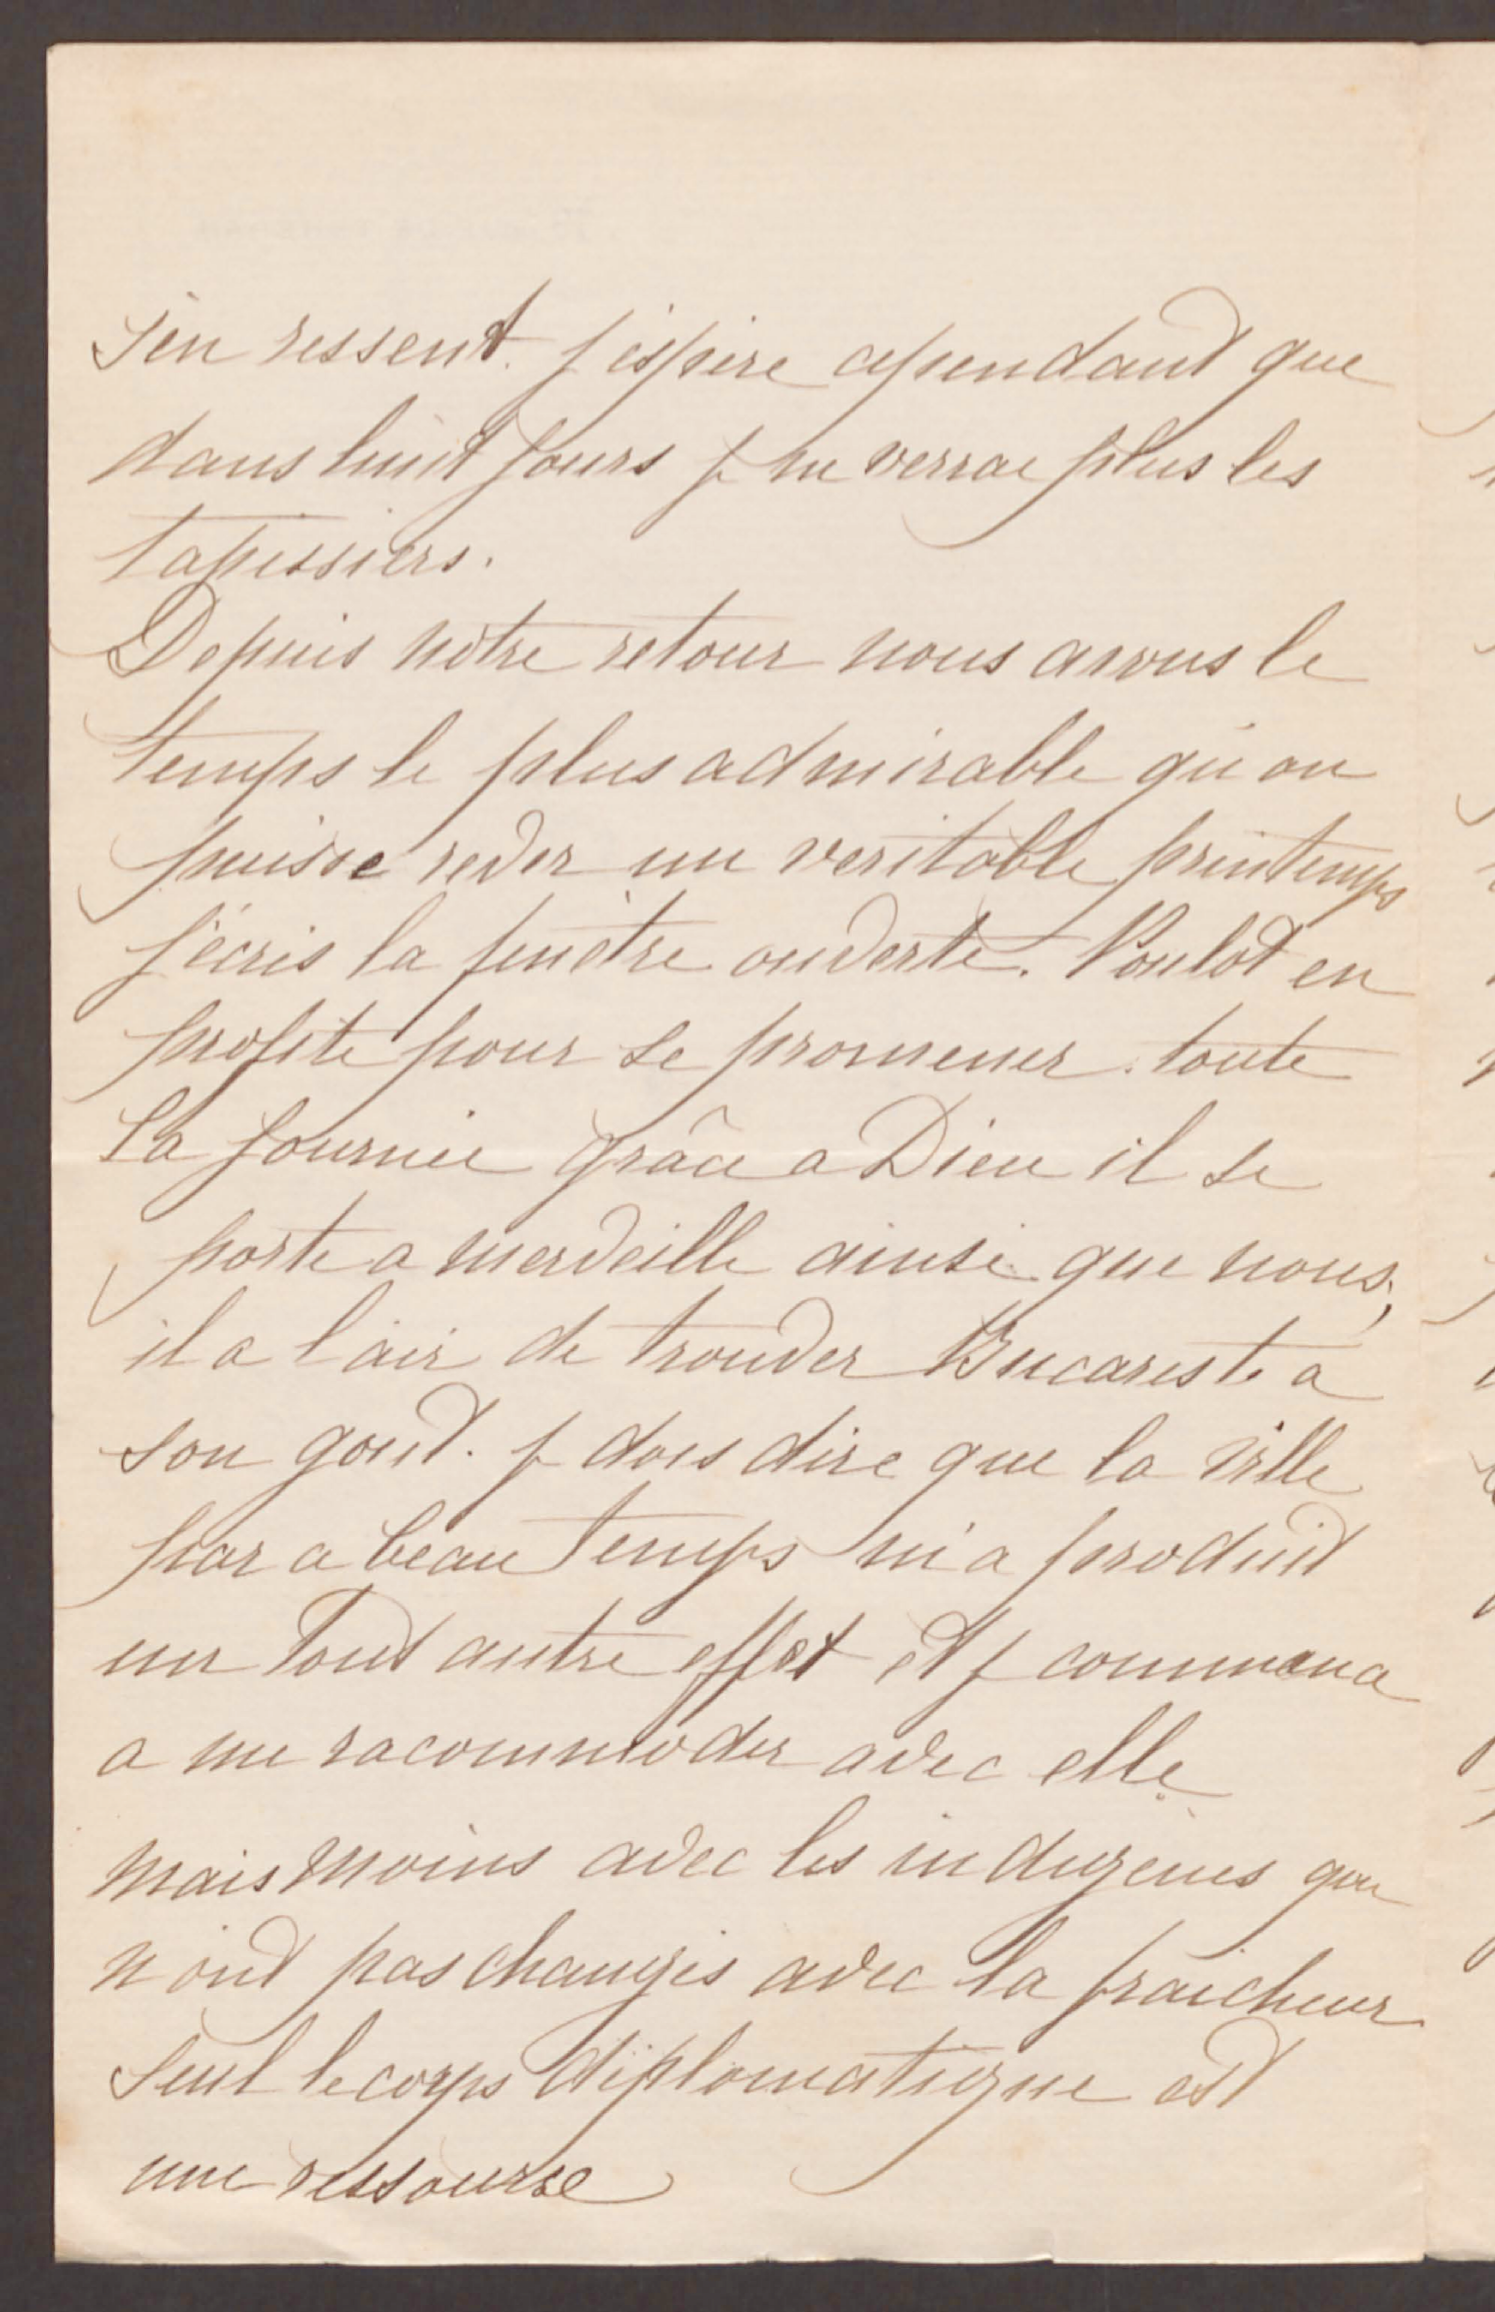 s'en ressent. j'espère cependant que
dans huit jours je ne verrai plus les
tapissiers.
Depuis nôtre retour nous avons le
temps le plus admirable qu'on
puisse rever un veritable printemps
j'écris la fenêtre ouverte. Poulot en
profite pour se promener toute
la journée grâce a Dieu il se
porte a merveille ainsi que nous;
il a l'air de trouver Bucareste a
son gout. je dois dire que la ville
par ce beau temps m'a produit
un tout autre effet et je commence
a me racommoder avec elle
mais moins avec les indigenes qui
n'ont pas changés avec la fraicheur
seul le corps diplomatique est
une ressource